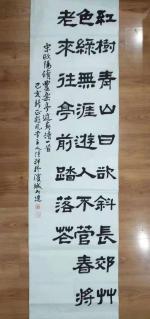 紅樹青山日欲斜長郊艸
色綠無涯遊人不管春將
老來往亭前踏落花
宋欧陽修豐樂亭遊春詩一首
己亥新正